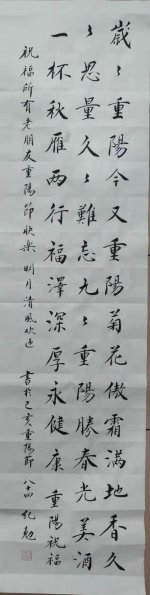 歲々重陽今又重陽菊花傲霜滿地香久
々思量久々難忘九々重陽勝春光美酒
一杯秋雁兩行福澤深厚永健康 重陽祝福
祝福所有老朋友重陽節快樂 明月清風欢迎 書於己亥重陽節 八十四